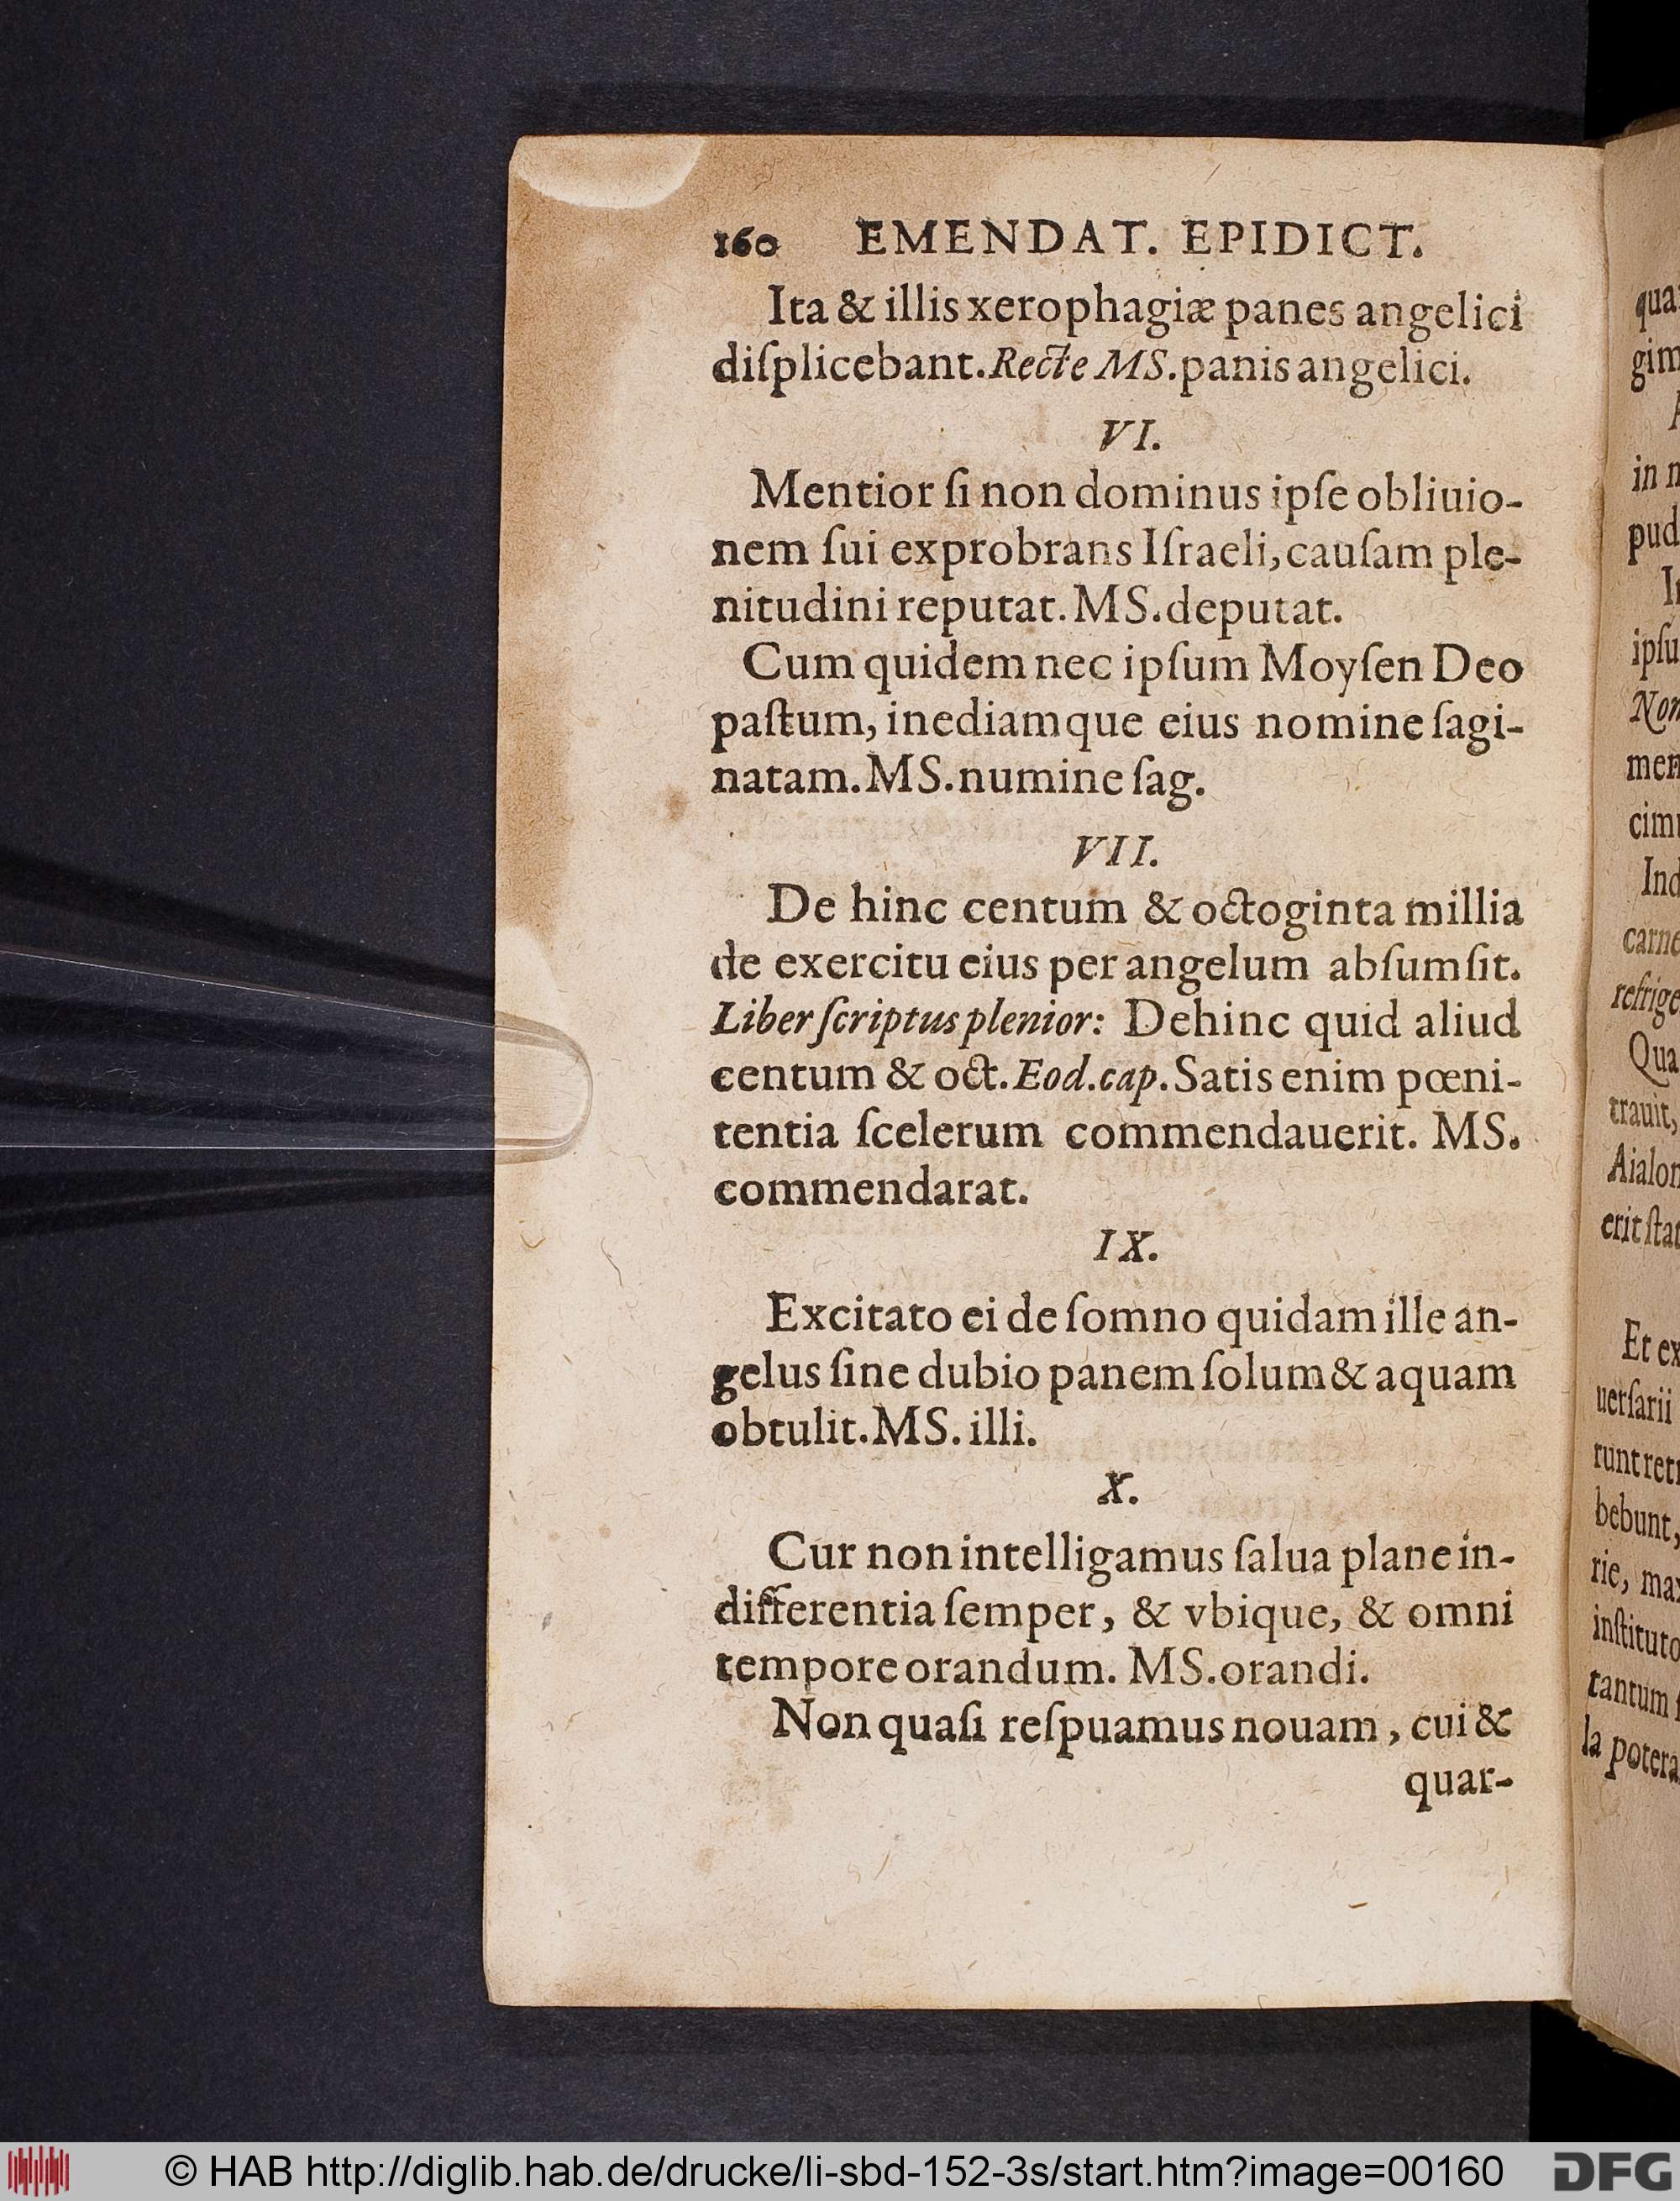 160 EMENDAT. EPIDICT.
Ita & illis xerophagiæ panes angelici
diſplicebant. Recte MS. panis angelici.
VI.
Mentior ſi non dominus ipſe obliuio-
nem ſui exprobrans Iſraeli, cauſam ple-
nitudini reputat. MS. deputat.
Cum quidem nec ipſum Moyſen Deo
paſtum, inediamque eius nomine ſagi-
natam. MS. numine ſag.
VII.
De hinc centum & octoginta millia
de exercitu eius per angelum abſumſit.
Liber ſcriptus plenior: Dehinc quid aliud
centum & oct. Eod. cap. Satis enim pœni-
tentia ſcelerum commendauerit. MS.
commendarat.
IX.
Excitato ei de ſomno quidam ille an-
gelus ſine dubio panem ſolum & aquam
obtulit. MS. illi.
X.
Cur non intelligamus ſalua plane in-
differentia ſemper, & vbique, & omni
tempore orandum. MS. orandi.
Non quaſi reſpuamus nouam, cui &
quar-
qua
gim
in n
pud
ipſu
Non
men
cim
Ind
carne
refrige
Qua
trauit,
Aialon
erit ſtat
Et ex
uerſarii
runt retr
bebunt,
rie, max
inſtituto
tantum ſ
la potera
© HAB http://diglib.hab.de/drucke/li-sbd-152-3s/start.htm?image=00160
DFG